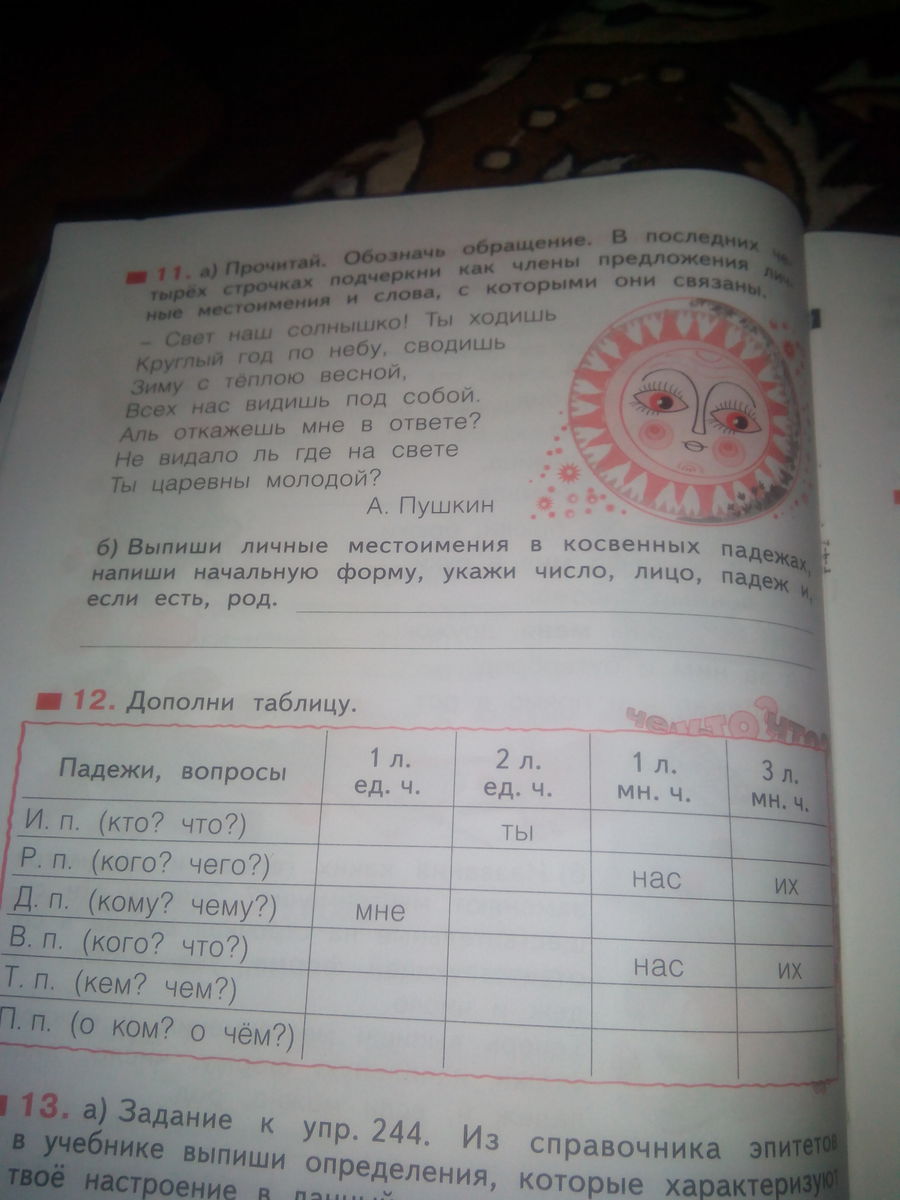 11. а) Прочитай. Обозначь обращение. В последних че-
тырёх строчках подчеркни как члены предложения лич-
ные местоимения и слова, с которыми они связаны.
– Свет наш солнышко! Ты ходишь
Круглый год по небу, сводишь
Зиму с тёплою весной,
Всех нас видишь под собой.
Аль откажешь мне в ответе?
Не видало ль где на свете
Ты царевны молодой?
А. Пушкин
б) Выпиши личные местоимения в косвенных падежах,
напиши начальную форму, укажи число, лицо, падеж и,
если есть, род.
12. Дополни таблицу.
Падежи, вопросы 1 л. ед. ч. 2 л. ед. ч. 1 л. мн. ч. 3 л. мн. ч.
И. п. (кто? что?) ты
Р. п. (кого? чего?) нас их
Д. п. (кому? чему?) мне
В. п. (кого? что?) нас их
Т. п. (кем? чем?)
П. п. (о ком? о чём?)
13. а) Задание к упр. 244. Из справочника эпитетов
в учебнике выпиши определения, которые характеризуют
твоё настроение в данный